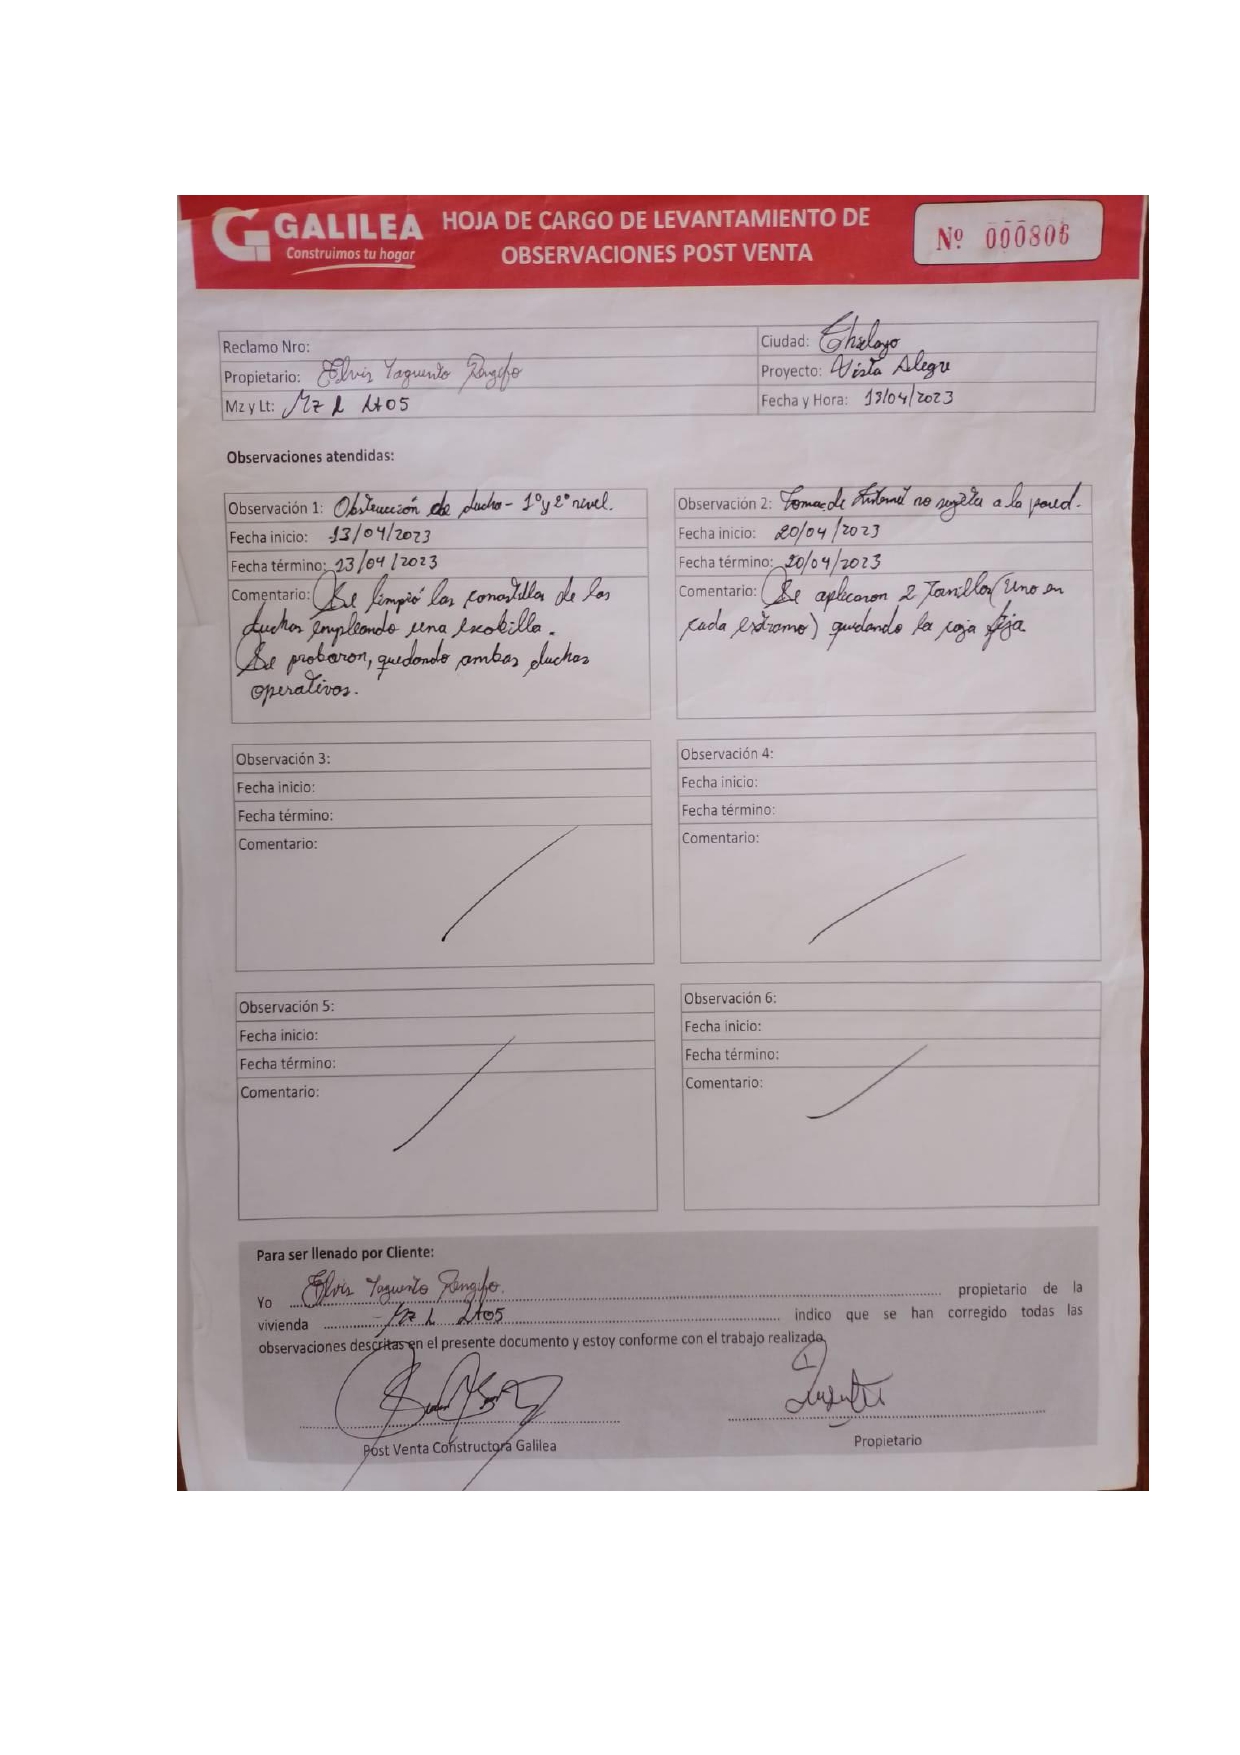 GALILEA
Construimos tu hogar
HOJA DE CARGO DE LEVANTAMIENTO DE
OBSERVACIONES POST VENTA
Nº 000806
Reclamo Nro:
Ciudad: Chiclayo
Propietario: Elvis Yaguento Rengifo
Proyecto: Vista Alegre
Mz y Lt: Mz L Lt05
Fecha y Hora: 13/04/2023
Observaciones atendidas:
Observación 1: Obstrucción de ducha - 1º y 2º nivel.
Fecha inicio: 13/04/2023
Fecha término: 23/04/2023
Comentario: Se limpió las canastillas de las
duchas empleando una escobilla.
Se probaron, quedando ambas duchas
operativas.
Observación 2: Toma de Internet no sujeta a la pared.
Fecha inicio: 20/04/2023
Fecha término: 20/04/2023
Comentario: Se aplicaron 2 Tornillos (uno en
cada extremo) quedando la caja fija
Observación 3:
Fecha inicio:
Fecha término:
Comentario:
Observación 4:
Fecha inicio:
Fecha término:
Comentario:
Observación 5:
Fecha inicio:
Fecha término:
Comentario:
Observación 6:
Fecha inicio:
Fecha término:
Comentario:
Para ser llenado por Cliente:
Yo Elvis Yaguento Rengifo. propietario de la
vivienda Mz L Lt05 indico que se han corregido todas las
observaciones descritas en el presente documento y estoy conforme con el trabajo realizado.
Post Venta Constructora Galilea
Propietario